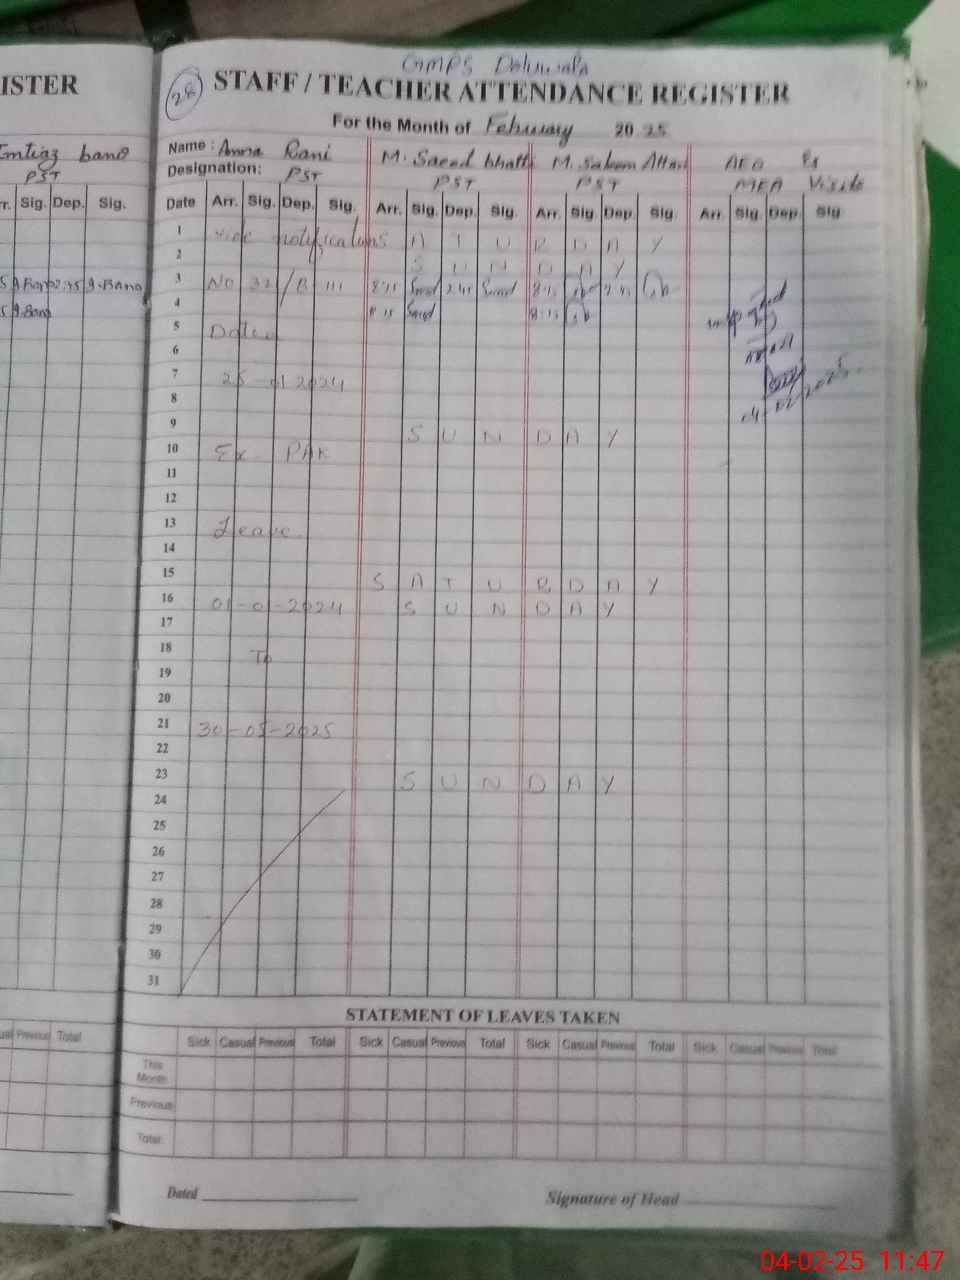 GMPS Doluwala
ISTER
28
STAFF / TEACHER ATTENDANCE REGISTER
For the Month of February 2025
Imtiaz bano
PST
Name : Amna Rani M. Saeed bhatti M. Saleem Attari AEO &
Designation: PST PST PST MEA Visits
r. Sig. Dep. Sig.
Date Arr. Sig. Dep. Sig. Arr. Sig. Dep. Sig. Arr. Sig Dep. Sig. Arr. Sig. Dep. Sig
1 Vide notifications S A T U R D A Y
2 S U N D A Y
3 No 32/B 111 8:15 Saeed 2:45 Saeed 8:15 2:45
4 8:15 Saeed 8:15
5 Dated
6
7 25-01 2024
8
04/02/2025
9 S U N D A Y
10 Ex PAK
11
12
13 Leave
14
15 S A T U R D A Y
16 01-0 -2024 S U N D A Y
17
18 To
19
20
21 30-05-2025
22
23 S U N D A Y
24
25
26
27
28
29
30
31
STATEMENT OF LEAVES TAKEN
ual Previous Total
Sick Casual Previous Total Sick Casual Previous Total Sick Casual Previous Total Sick Casual Previous Total
This Month
Previous
Total
Dated
Signature of Head
04-02-25 11:47